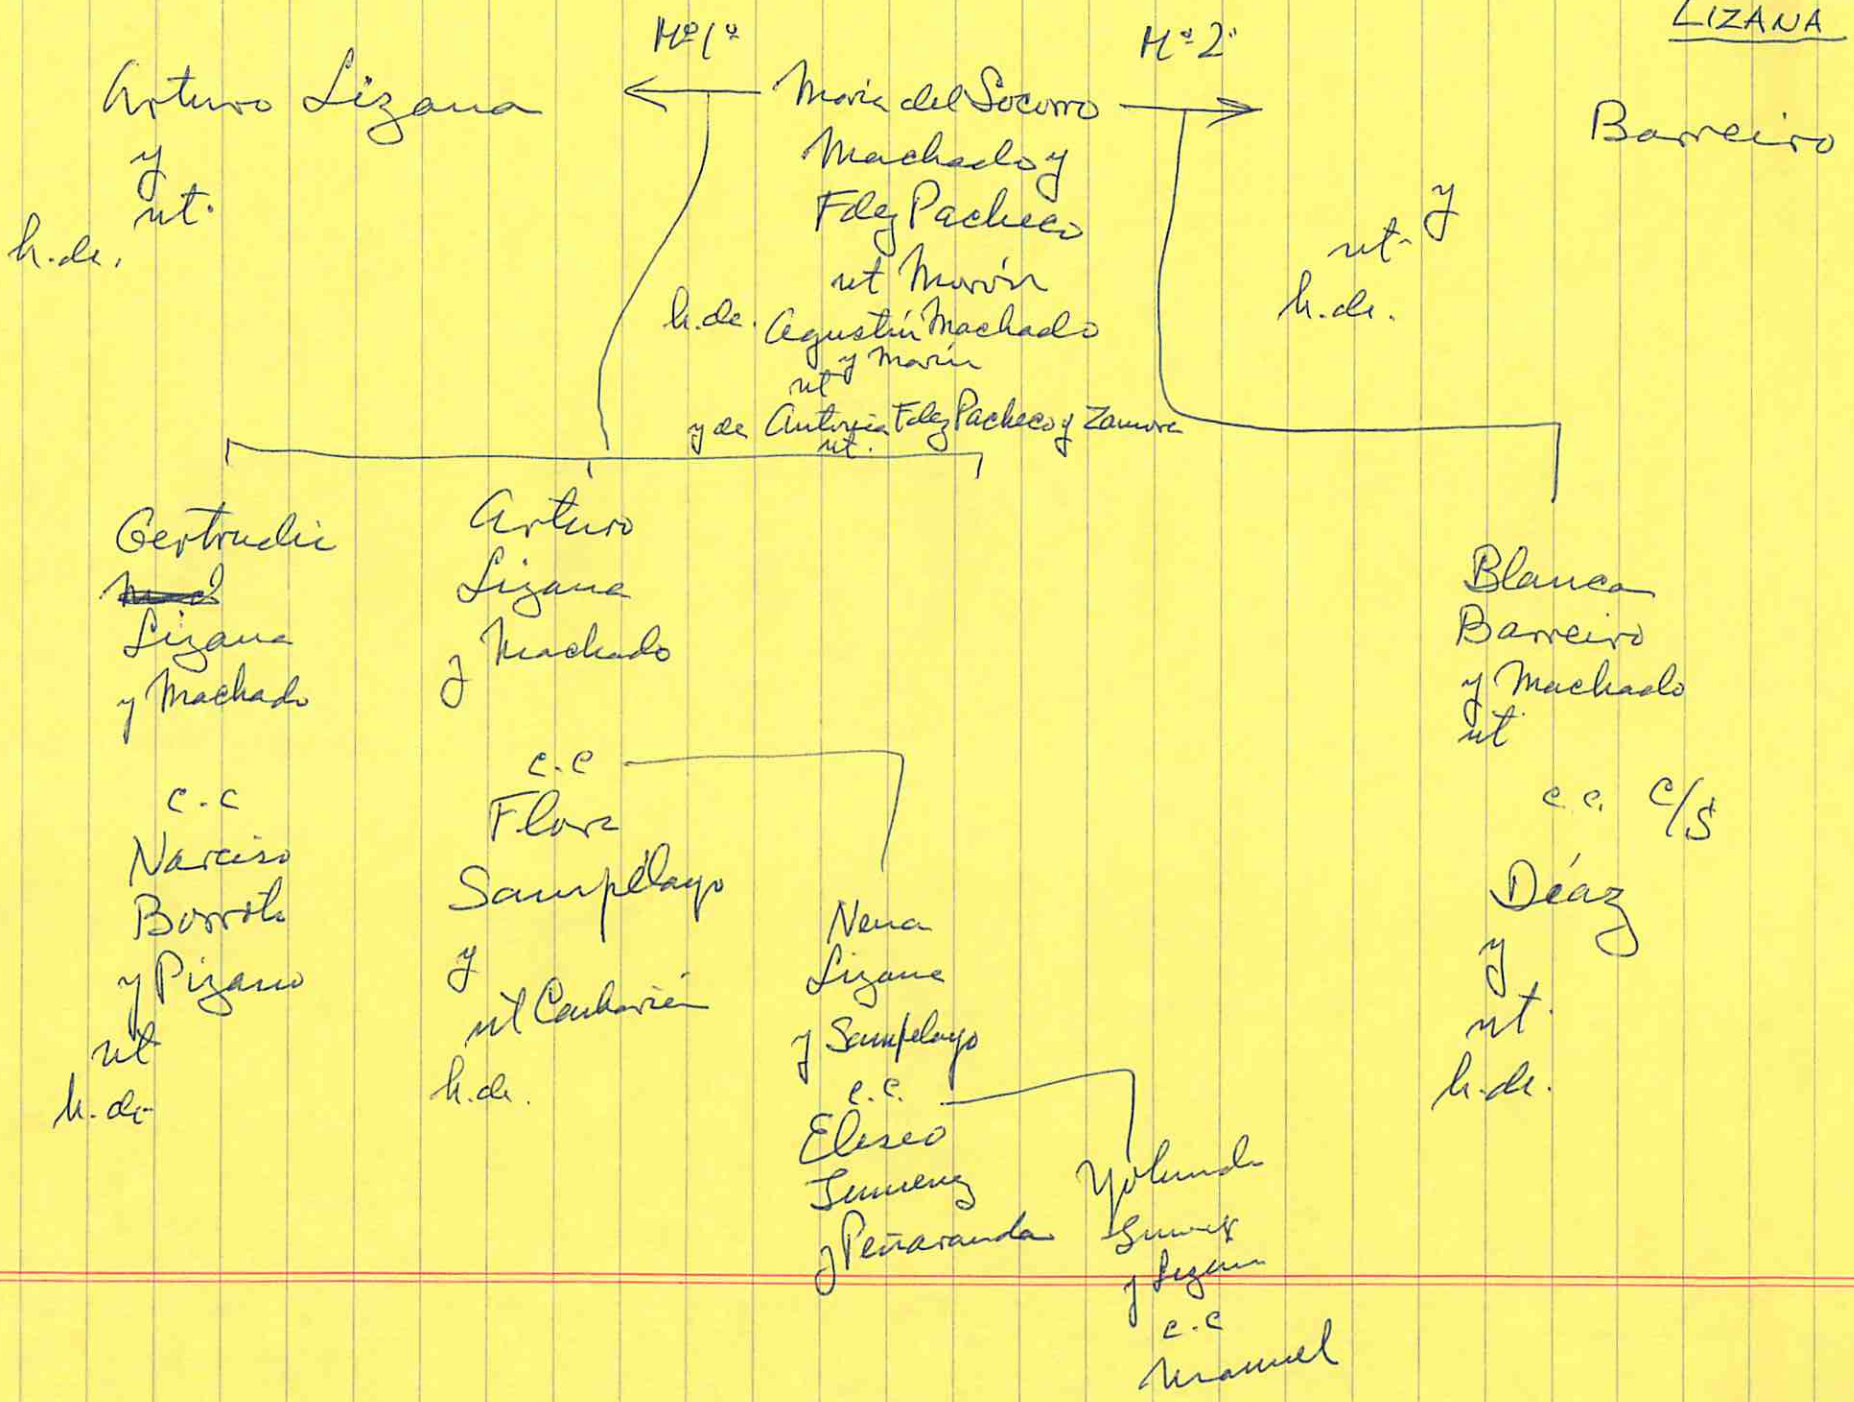 LIZANA
Mº1º
Mº2º
Arturo Lizana
y
nt.
h.de.
Maria del Socorro
Machado y
Fdez Pacheco
nt Morón
h.de. Agustín Machado
y Marín
nt
y de Antonia Fdez Pacheco y Zamora
nt.
Barreiro
y
nt.
h.de.
Gertrudis
Lizana
y Machado
c.c
Narciso
Borroto
y Pizano
nt
h.de
Arturo
Lizana
y Machado
c.c
Flora
Sampélayo
y
nt Caibarién
h.de.
Nena
Lizana
y Sampelayo
c.c.
Eliseo
Jimenez
y Peñaranda
Yolanda
Jimenez
y Lizana
c.c
Manuel
Blanca
Barreiro
y Machado
nt
c.c. C/S
Díaz
y
nt.
h.de.